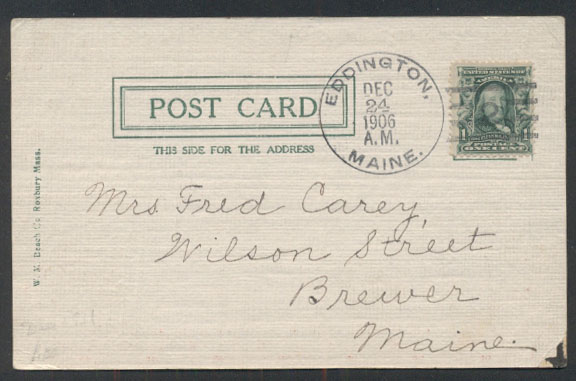 POST CARD
THIS SIDE FOR THE ADDRESS
EDDINGTON,
DEC
24
1906
A.M.
MAINE.
UNITED STATES OF AMERICA
POSTAGE
ONE CENT
Mrs. Fred Carey,
Wilson Street
Brewer
Maine.
W. N. Beach Co. Roxbury Mass.